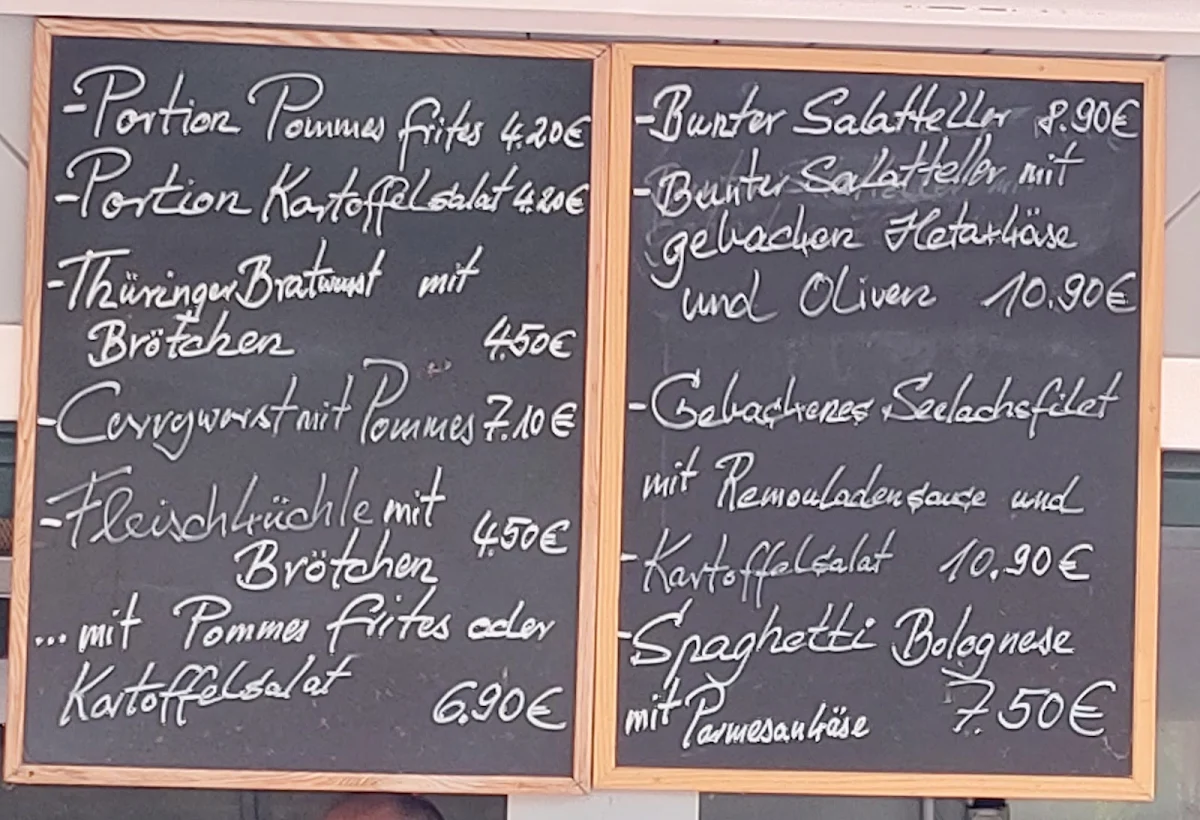 -Portion Pommes frites 4.20€
-Portion Kartoffelsalat 4.20€
-Thüringer Bratwurst mit
Brötchen 4.50€
-Currywurst mit Pommes 7.10€
-Fleischküchle mit
Brötchen 4.50€
...mit Pommes frites oder
Kartoffelsalat 6.90€
-Bunter Salatteller 8.90€
-Bunter Salatteller mit
gebacken Hetarkäse
und Oliven 10.90€
-Gebackenes Seelachsfilet
mit Remouladensauce und
-Kartoffelsalat 10.90€
-Spaghetti Bolognese
mit Parmesankäse 7.50€